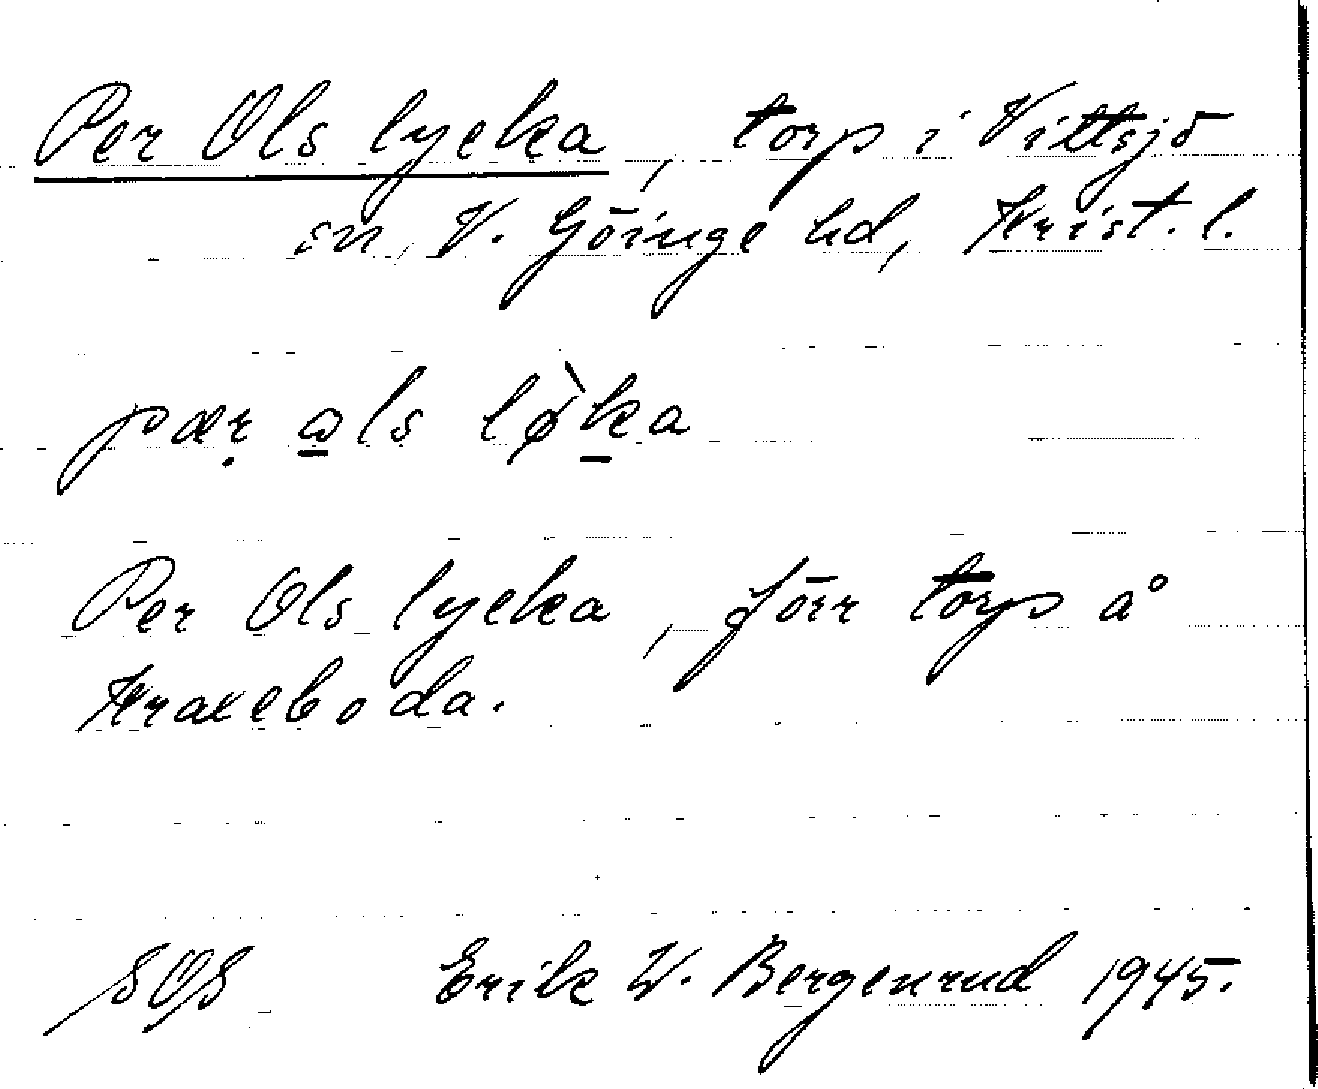 Per Ols lycka, torp i Vittsjö
sn, V. Göinge hd, Krist. l.
pær als lø̀ka
Per Ols lycka, förr torp å
Kraxeboda.
SOS Erik W. Bergenrud 1945.